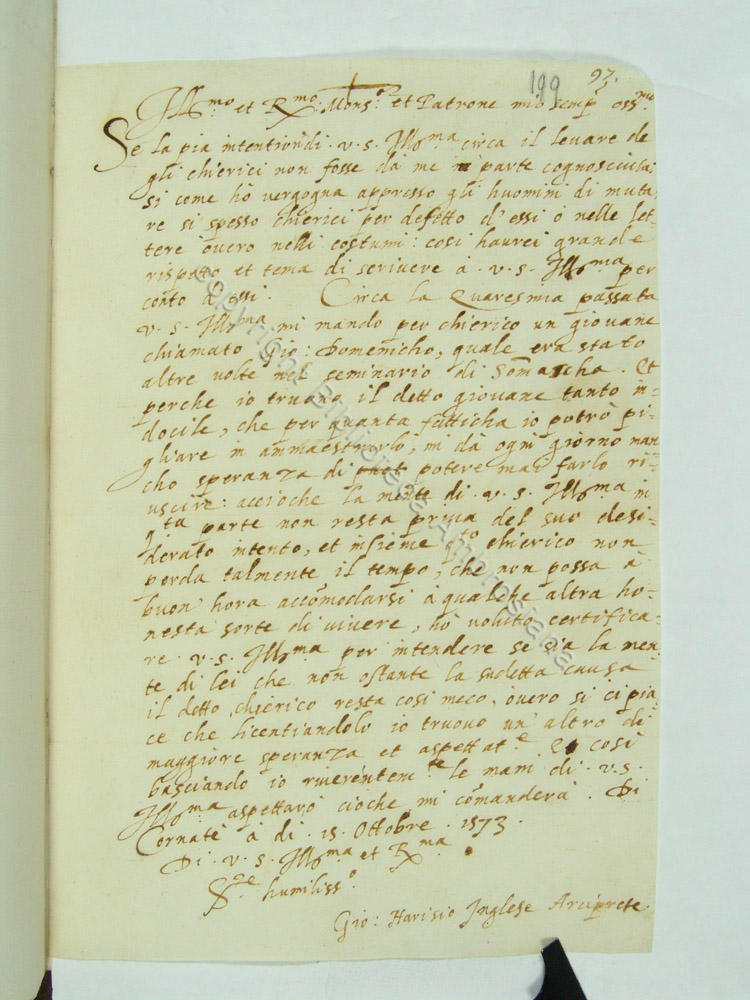 199 97.
Ill.mo et R.mo Mons.or et Patrone mio semp. oss.mo
Se la pia intention di .v.s. Ill.ma circa il levare de
gli chierici non fosse da me in parte cognosciuta;
si come hò vergogna appresso gli huomini di muta,
re si spesso chierici per defetto d'essi ò nelle let-
tere òvero nelli costumi: cosi haurei grande
rispetto et tema di scrivere à .v.s. Ill.ma per
conto d'essi. Circa la Quaresmia passata
v.s. Ill.ma mi mando per chierico un giovane
chiamato Gio: Domenicho, quale era stato
altre volte nel seminario di Somascha. Et
perche io truovo il detto giovane tanto in-
docile, che per quanta fatticha io potrò pi-
gliare in ammaestrarlo, mi dà ogni giorno man
cho speranza di potere mai farlo ri-
uscire: accioche la mente di .v.s. Ill.ma in
q.ta parte non resta priva del suo desi-
derato intento, et insieme q.to chierico non
perda talmente il tempo, che non possa à
buon' hora accomodarsi à qualche altra ho-
nesta sorte di vivere, hò voluto certifica-
re .v.s. Ill.ma per intendere se sia la men,
te di lei che non ostante la sudetta causa
il detto chierico resta cosi meco, òvero si ci pia,
ce che licentiandolo io truovo un' altro di
maggiore speranza et aspettat.e Et cosi
basciando io riverentem.te le mani di .v.s.
Ill.ma aspettarò cioche mi comanderà. Di
Cornate à di .15. Ottobre .1573.
Di .v.s. Ill.ma et R.ma
S.re humiliss.o
Gio: Harisio Inglese Arciprete
Copyright Biblioteca Ambrosiana